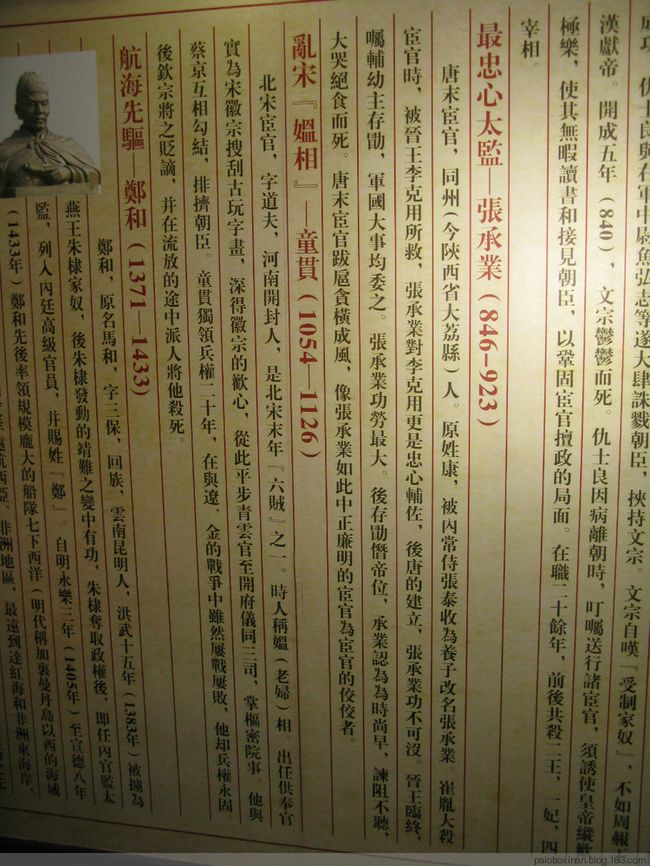 仇士良與右軍中尉魚弘志等遂大肆誅戮朝臣，挾持文宗。文宗自嘆『受制家奴』，不如周赧
漢獻帝。開成五年（840），文宗鬱鬱而死。仇士良因病離朝時，叮囑送行諸宦官，須誘使皇帝縱
極樂，使其無暇讀書和接見朝臣，以鞏固宦官擅政的局面。在職二十餘年，前後共殺二王，一妃，四
宰相。
最忠心太監—張承業（846-923）
唐末宦官，同州（今陝西省大荔縣）人。原姓康，被內常侍張泰收為養子改名張承業。崔胤大殺
宦官時，被晉王李克用所救，張承業對李克用更是忠心輔佐，後唐的建立，張承業功不可沒。晉王臨終，
囑輔幼主存勖，軍國大事均委之。張承業功勞最大。後存勖僭帝位，承業認為為時尚早，諫阻不聽，
大哭絕食而死。唐末宦官跋扈貪橫成風，像張承業如此中正廉明的宦官為宦官的佼佼者。
亂宋『媼相』—童貫（1054—1126）
北宋宦官，字道夫，河南開封人，是北宋末年『六賊』之一。時人稱媼（老婦）相。出任供奉官
實為宋徽宗搜刮古玩字畫，深得徽宗的歡心，從此平步青雲官至開府儀同三司，掌樞密院事。他與
蔡京互相勾結，排擠朝臣。童貫獨領兵權二十年，在與遼、金的戰爭中雖然屢戰屢敗，他却兵權永固。
後欽宗將之貶謫，并在流放的途中派人將他殺死。
航海先驅 鄭和（1371—1433）
鄭和，原名馬和，字三保，回族，雲南昆明人，洪武十五年（1383年）被擄為
燕王朱棣家奴，後朱棣發動的靖難之變中有功，朱棣奪取政權後，即任內官監太
監，列入內廷高級官員，并賜姓『鄭』。自明永樂三年（1405年）至宣德八年
（1433年）鄭和先後率領規模龐大的船隊七下西洋（明代稱加裏曼丹島以西的海域
西亞、非洲地區，最遠到達紅海和非洲東海岸，
paioboxinan.blog.163.com